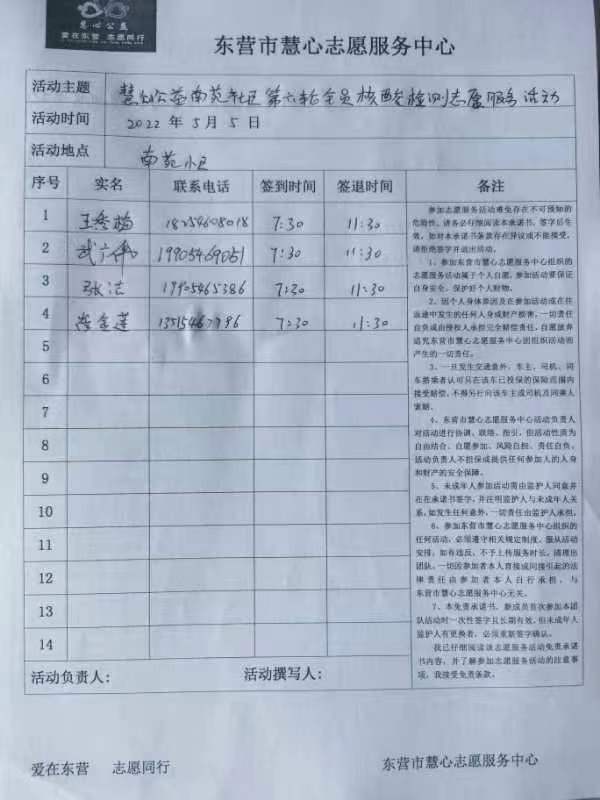 慧心公益
爱在东营 志愿同行
东营市慧心志愿服务中心
活动主题 慧心公益南苑社区第六轮全员核酸检测志愿服务活动
活动时间 2022年5月5日
活动地点 南苑小区
序号 实名 联系电话 签到时间 签退时间 备注
1 王秀梅 18254608018 7:30 11:30
2 武广伟 19905469051 7:30 11:30
3 张洁 19905465386 7:30 11:30
4 金莲 13515467996 7:30 11:30
5
6
7
8
9
10
11
12
13
14
参加志愿服务活动难免存在不可预知的
危险性，请务必仔细阅读本承诺书，签字后生
效。如对本承诺书条款存在异议或不能接受，
请拒绝签字并退出活动。
1、参加东营市慧心志愿服务中心组织的
志愿服务活动属于个人自愿，参加活动要保证
自身安全，保护好个人财物。
2、因个人身体原因及在参加活动或在往
返途中发生的任何人身或财产损害，一切责任
自负或由侵权人承担完全赔偿责任，自愿放弃
追究东营市慧心志愿服务中心因组织活动而
产生的一切责任。
3、一旦发生交通意外，车主、司机、同
车搭乘者认可只在该车已投保的保险范围内
接受赔偿，不得另行向该车主或司机及同乘人
索赔。
4、东营市慧心志愿服务中心活动负责人
对活动进行协调、联络、指引，但活动性质为
自由结合、自愿参加、风险自担、责任自负。
活动负责人不担保或提供任何参加人的人身
和财产的安全保障。
5、未成年人参加活动需由监护人同意并
在在承诺书签字，并注明监护人与未成年人关
系，如发生任何意外，一切责任由监护人承担。
6、参加东营市慧心志愿服务中心组织的
任何活动，必须遵守相关规定制度，服从活动
安排，如有违反，不予上传服务时长，清理出
团队。一切因参加者本人直接或间接引起的法
律责任由参加者本人自行承担，与
东营市慧心志愿服务中心无关。
7、本免责承诺书，新成员首次参加本团
队活动时一次性签字且长期有效，但未成年人
监护人有更换者，必须重新签字确认。
我已仔细阅读该志愿服务活动免责承诺
书内容，并了解参加志愿服务活动的注意事
项，我接受免责条款。
活动负责人： 活动撰写人：
爱在东营 志愿同行 东营市慧心志愿服务中心